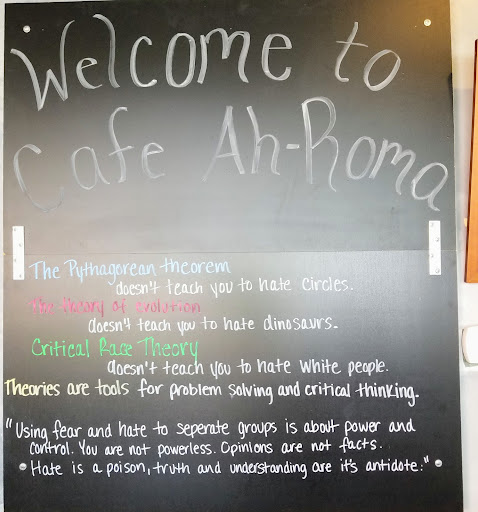 Welcome to
Cafe Ah-Roma
The Pythagorean theorem
doesn't teach you to hate circles.
The theory of evolution
doesn't teach you to hate dinosaurs.
Critical Race Theory
doesn't teach you to hate white people.
Theories are tools for problem solving and critical thinking.
"Using fear and hate to seperate groups is about power and
control. You are not powerless. Opinions are not facts.
• Hate is a poison, truth and understanding are it's antidote."